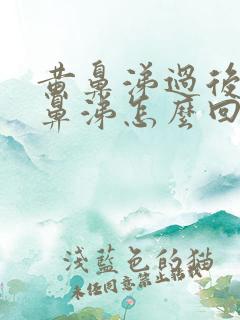 黄鼻涕過後
鼻涕怎麼回
浅藍色的猫
未经同意禁止転載